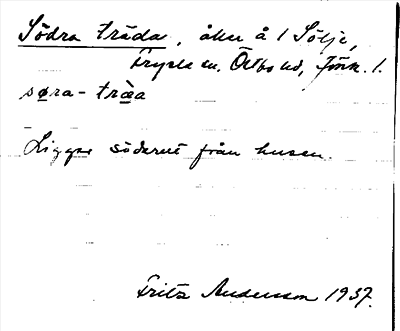 Södra träda, åker å 1 Sölje,
Fryele sn. Östbo hd, Jönk. l.
søra - træa
Ligger söderut från husen.
Fritz Anderson 1937.